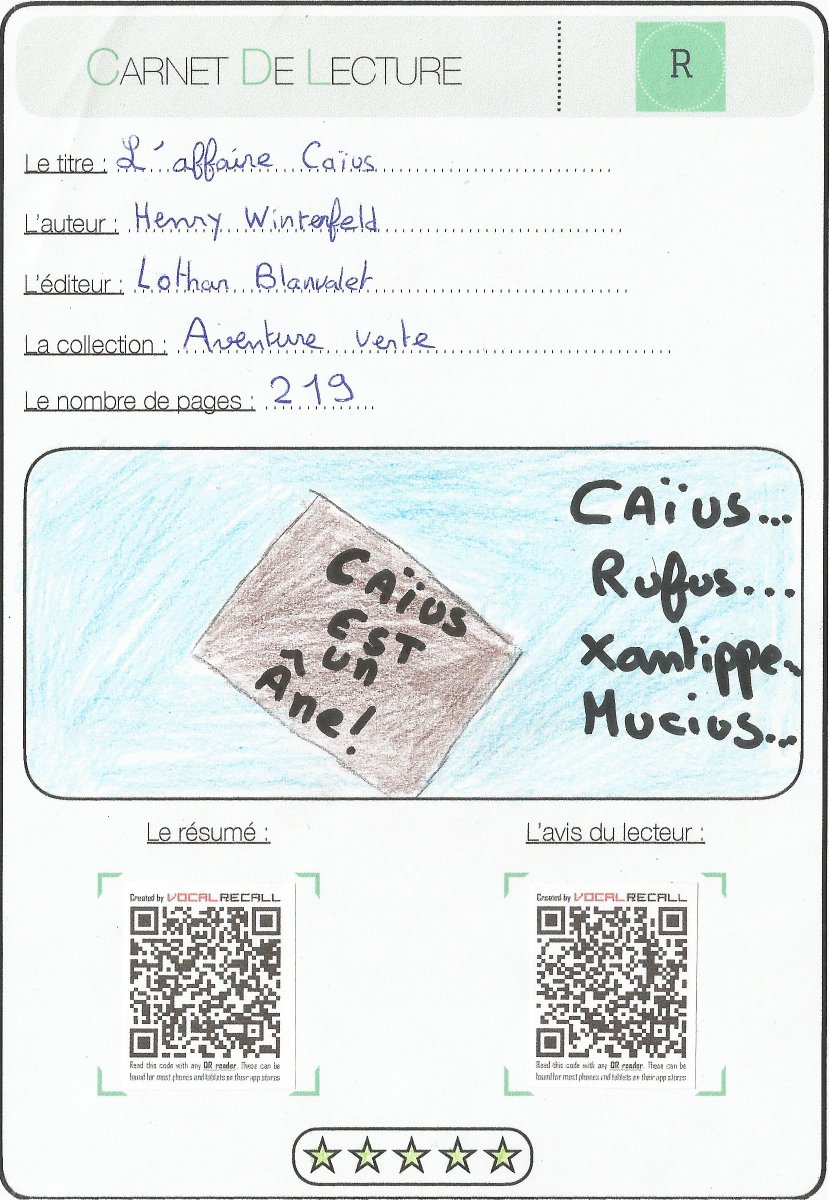 CARNET DE LECTURE
R
Le titre : L'affaire Caïus
L'auteur : Henry Winterfeld
L'éditeur : Lothar Blanvalet
La collection : Aventure verte
Le nombre de pages : 219
CAïUS EST un Âne!
CAïus...
Rufus...
Xantippe..
Mucius...
Le résumé :
L'avis du lecteur :
Created by VOCALRECALL
Read this code with any QR reader. These can be
found for most phones and tablets on their app stores
Created by VOCALRECALL
Read this code with any QR reader. These can be
found for most phones and tablets on their app stores